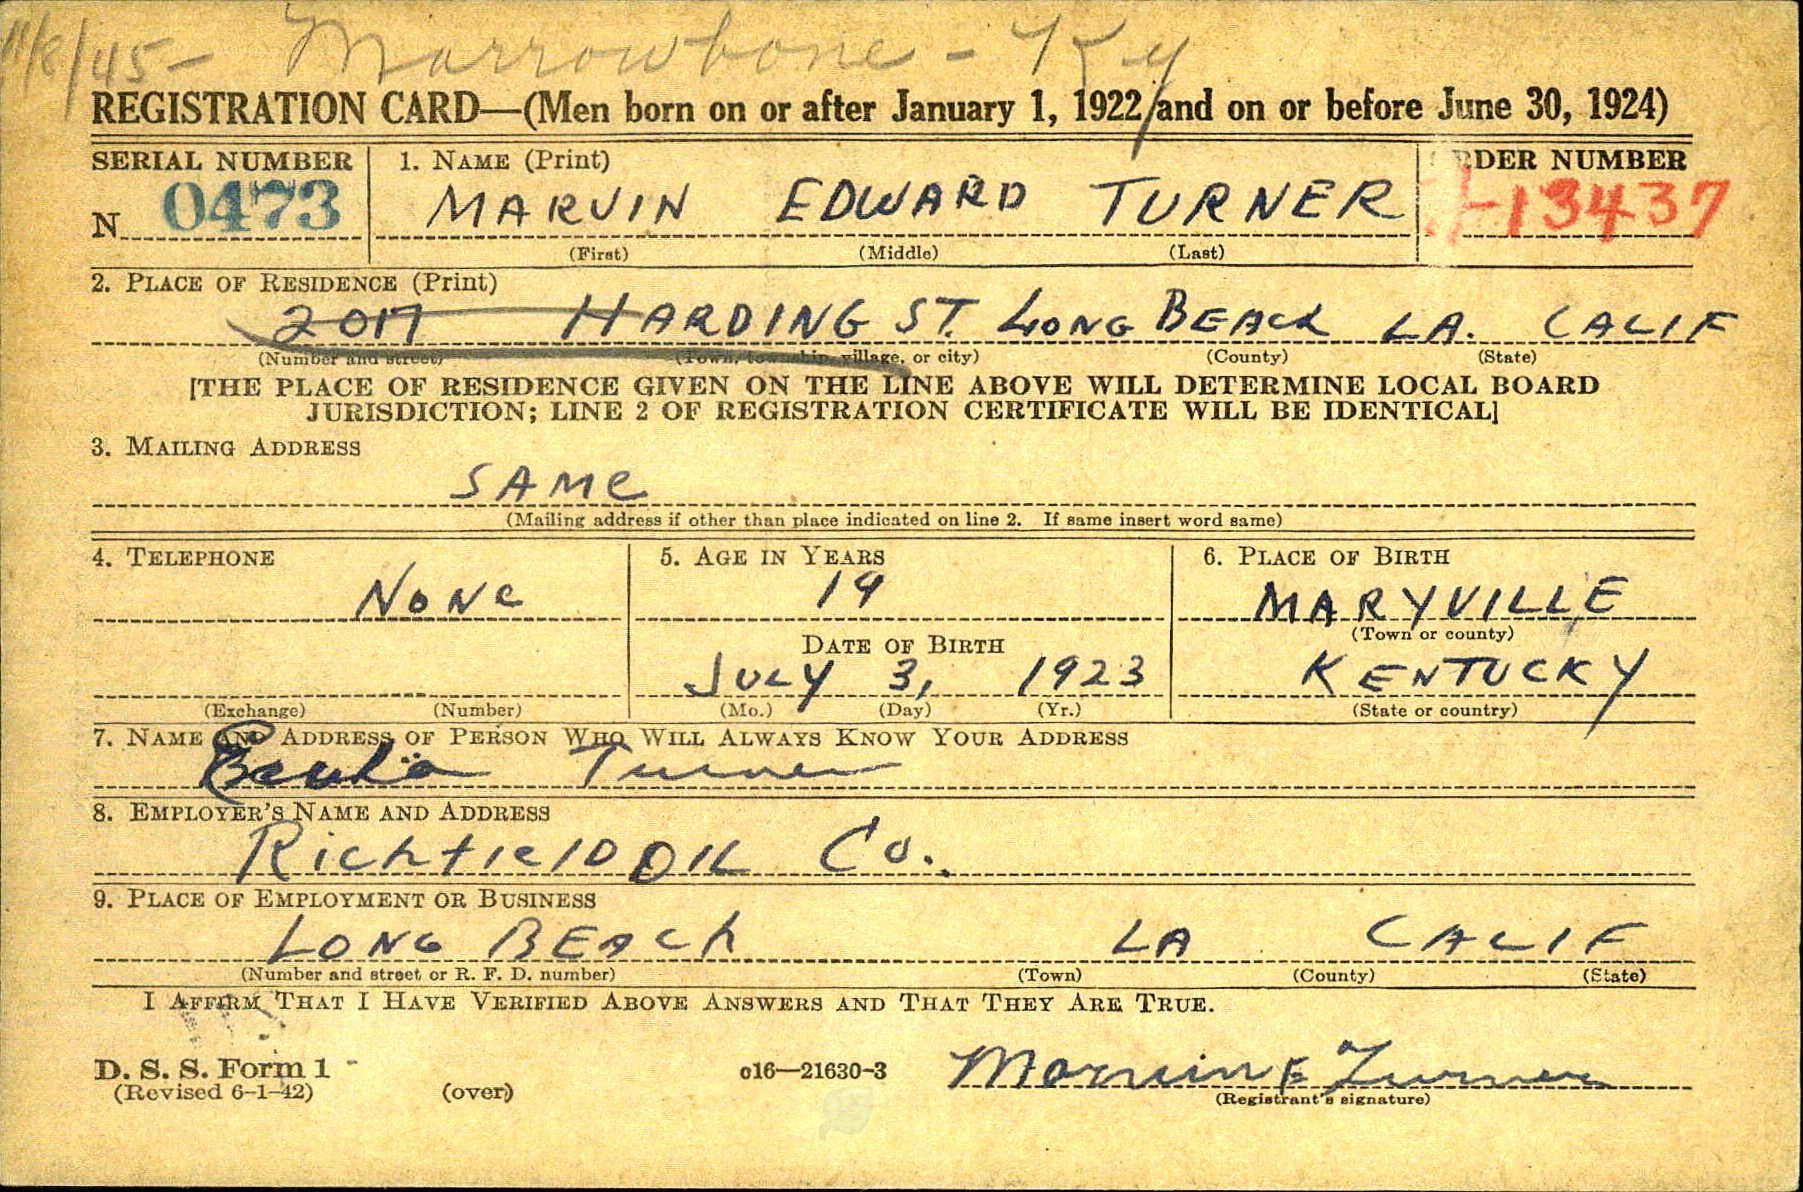 11/8/45 - Marrowbone - Ky
REGISTRATION CARD—(Men born on or after January 1, 1922 and on or before June 30, 1924)
SERIAL NUMBER 1. NAME (Print) ORDER NUMBER
N 0473 MARVIN EDWARD TURNER 13437
(First) (Middle) (Last)
2. PLACE OF RESIDENCE (Print)
2017 HARDING ST. LONG BEACh LA. CALIF
(Number and street) (Town, township, village, or city) (County) (State)
[THE PLACE OF RESIDENCE GIVEN ON THE LINE ABOVE WILL DETERMINE LOCAL BOARD
JURISDICTION; LINE 2 OF REGISTRATION CERTIFICATE WILL BE IDENTICAL]
3. MAILING ADDRESS
SAMe
(Mailing address if other than place indicated on line 2. If same insert word same)
4. TELEPHONE 5. AGE IN YEARS 6. PLACE OF BIRTH
NoNe 19 MARYVILLE
DATE OF BIRTH (Town or county)
JULY 3, 1923 KENTUCKY
(Exchange) (Number) (Mo.) (Day) (Yr.) (State or country)
7. NAME AND ADDRESS OF PERSON WHO WILL ALWAYS KNOW YOUR ADDRESS
Beula Turner
8. EMPLOYER'S NAME AND ADDRESS
RichfielD OIL Co.
9. PLACE OF EMPLOYMENT OR BUSINESS
LONG BEACh LA CALIF
(Number and street or R. F. D. number) (Town) (County) (State)
I AFFIRM THAT I HAVE VERIFIED ABOVE ANSWERS AND THAT THEY ARE TRUE.
D. S. S. Form 1 c16—21630-3 Marvin E Turner
(Revised 6-1-42) (over) (Registrant's signature)